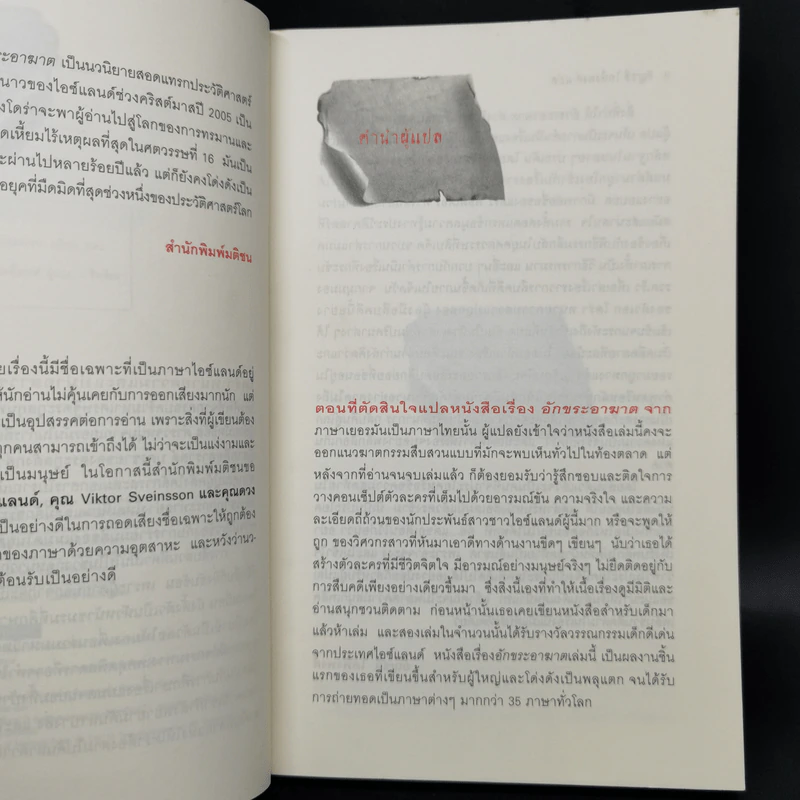 ระอาฆาต เป็นนวนิยายสอดแทรกประวัติศาสตร์
นาวของไอซ์แลนด์ช่วงคริสต์มาสปี 2005 เป็น
งโดร่าจะพาผู้อ่านไปสู่โลกของการทรมานและ
ดเหี้ยมไร้เหตุผลที่สุดในศตวรรษที่ 16 มันเป็น
ะผ่านไปหลายร้อยปีแล้ว แต่ก็ยังคงโด่งดังเป็น
อยุคที่มืดมิดที่สุดช่วงหนึ่งของประวัติศาสตร์โลก
สำนักพิมพ์มติชน
ยเรื่องนี้มีชื่อเฉพาะที่เป็นภาษาไอซ์แลนด์อยู่
ห้นักอ่านไม่คุ้นเคยกับการออกเสียงมากนัก แต่
เป็นอุปสรรคต่อการอ่าน เพราะสิ่งที่ผู้เขียนต้อง
ทุกคนสามารถเข้าถึงได้ ไม่ว่าจะเป็นแง่งามและ
เป็นมนุษย์ ในโอกาสนี้สำนักพิมพ์มติชนขอ
แลนด์, คุณ Viktor Sveinsson และคุณดวง
ป็นอย่างดีในการถอดเสียงชื่อเฉพาะให้ถูกต้อง
ของภาษาด้วยความอุตสาหะ และหวังว่านว-
ต้อนรับเป็นอย่างดี
คำนำผู้แปล
ตอนที่ตัดสินใจแปลหนังสือเรื่อง อักขระอาฆาต จาก
ภาษาเยอรมันเป็นภาษาไทยนั้น ผู้แปลยังเข้าใจว่าหนังสือเล่มนี้คงจะ
ออกแนวฆาตกรรมสืบสวนแบบที่มักจะพบเห็นทั่วไปในท้องตลาด แต่
หลังจากที่อ่านจนจบเล่มแล้ว ก็ต้องยอมรับว่ารู้สึกชอบและติดใจการ
วางคอนเซ็ปต์ตัวละครที่เต็มไปด้วยอารมณ์ขัน ความจริงใจ และความ
ละเอียดถี่ถ้วนของนักประพันธ์สาวชาวไอซ์แลนด์ผู้นี้มาก หรือจะพูดให้
ถูก ของวิศวกรสาวที่หันมาเอาดีทางด้านงานขีดๆ เขียนๆ นับว่าเธอได้
สร้างตัวละครที่มีชีวิตจิตใจ มีอารมณ์อย่างมนุษย์จริงๆ ไม่ยึดติดอยู่กับ
การสืบคดีเพียงอย่างเดียวขึ้นมา ซึ่งสิ่งนี้เองที่ทำให้เนื้อเรื่องดูมีมิติและ
อ่านสนุกชวนติดตาม ก่อนหน้านั้นเธอเคยเขียนหนังสือสำหรับเด็กมา
แล้วห้าเล่ม และสองเล่มในจำนวนนั้นได้รับรางวัลวรรณกรรมเด็กดีเด่น
จากประเทศไอซ์แลนด์ หนังสือเรื่องอักขระอาฆาตเล่มนี้ เป็นผลงานชิ้น
แรกของเธอที่เขียนขึ้นสำหรับผู้ใหญ่และโด่งดังเป็นพลุแตก จนได้รับ
การถ่ายทอดเป็นภาษาต่างๆ มากกว่า 35 ภาษาทั่วโลก